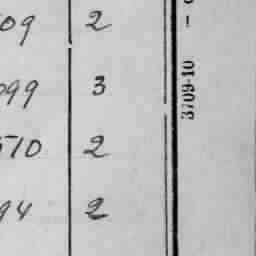 09 2
099 3
510 2
94 2
3709-10 -